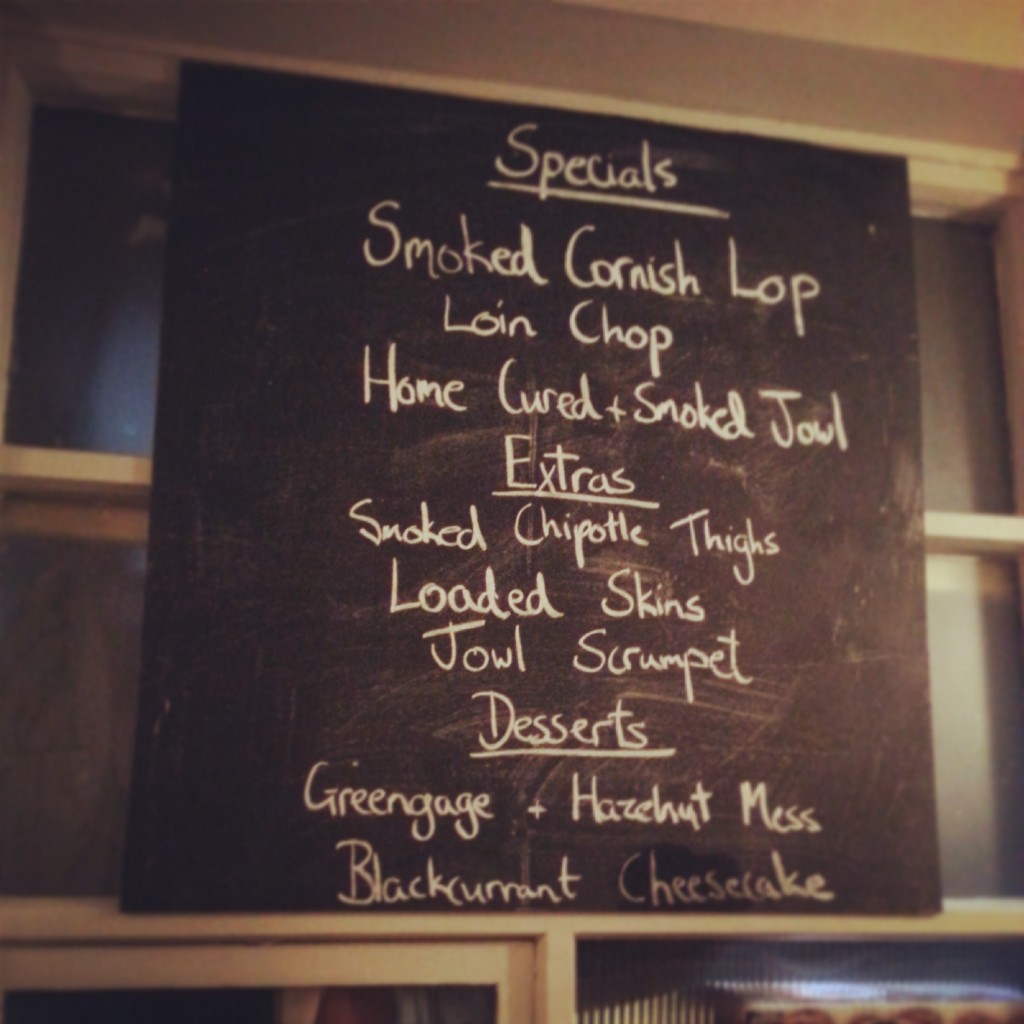 Specials
Smoked Cornish Lop
Loin Chop
Home Cured + Smoked Jowl
Extras
Smoked Chipotle Thighs
Loaded Skins
Jowl Scrumpet
Desserts
Greengage + Hazelnut Mess
Blackcurrant Cheesecake